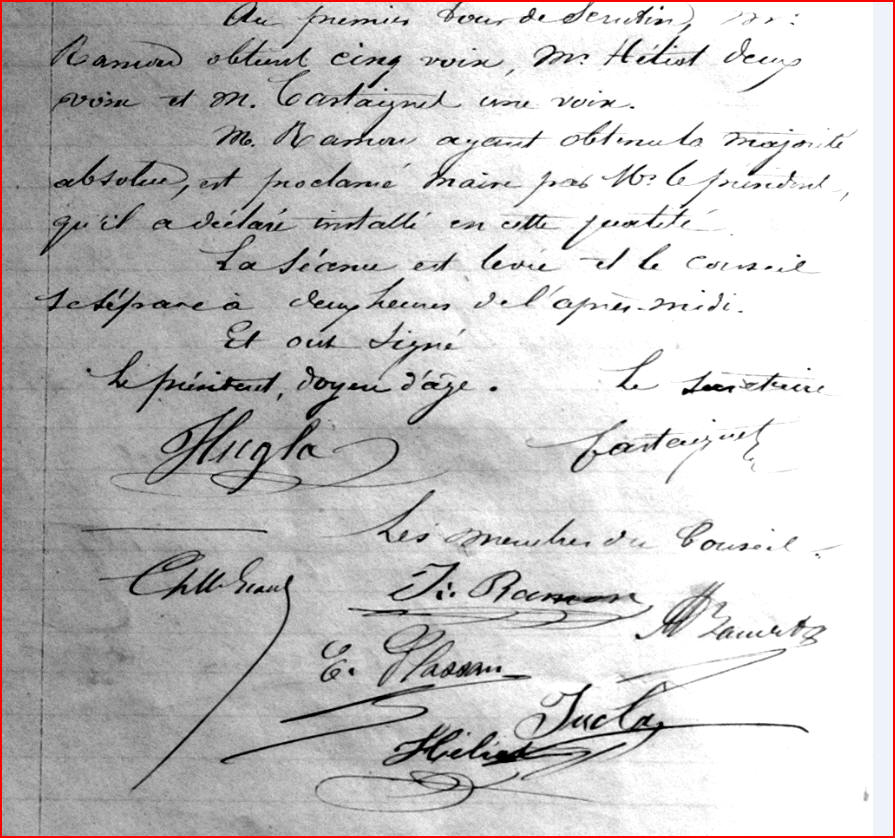 Au premier tour de scrutin, Mr.
Ramon obtient cinq voix, Mr. Héliot deux
voix et M. Castaignet une voix.
M. Ramon ayant obtenu la majorité
absolue, est proclamé maire par Mr. le président,
qu'il a déclaré installé en cette qualité.
La séance est levée et le conseil
se sépare à deux heures de l'après-midi.
Et ont signé
Le président, doyen d'âge. Le secrétaire
Hugla Castaignet
Les membres du Conseil.
J. Ramon
E. Plassan
Jucla
Héliot